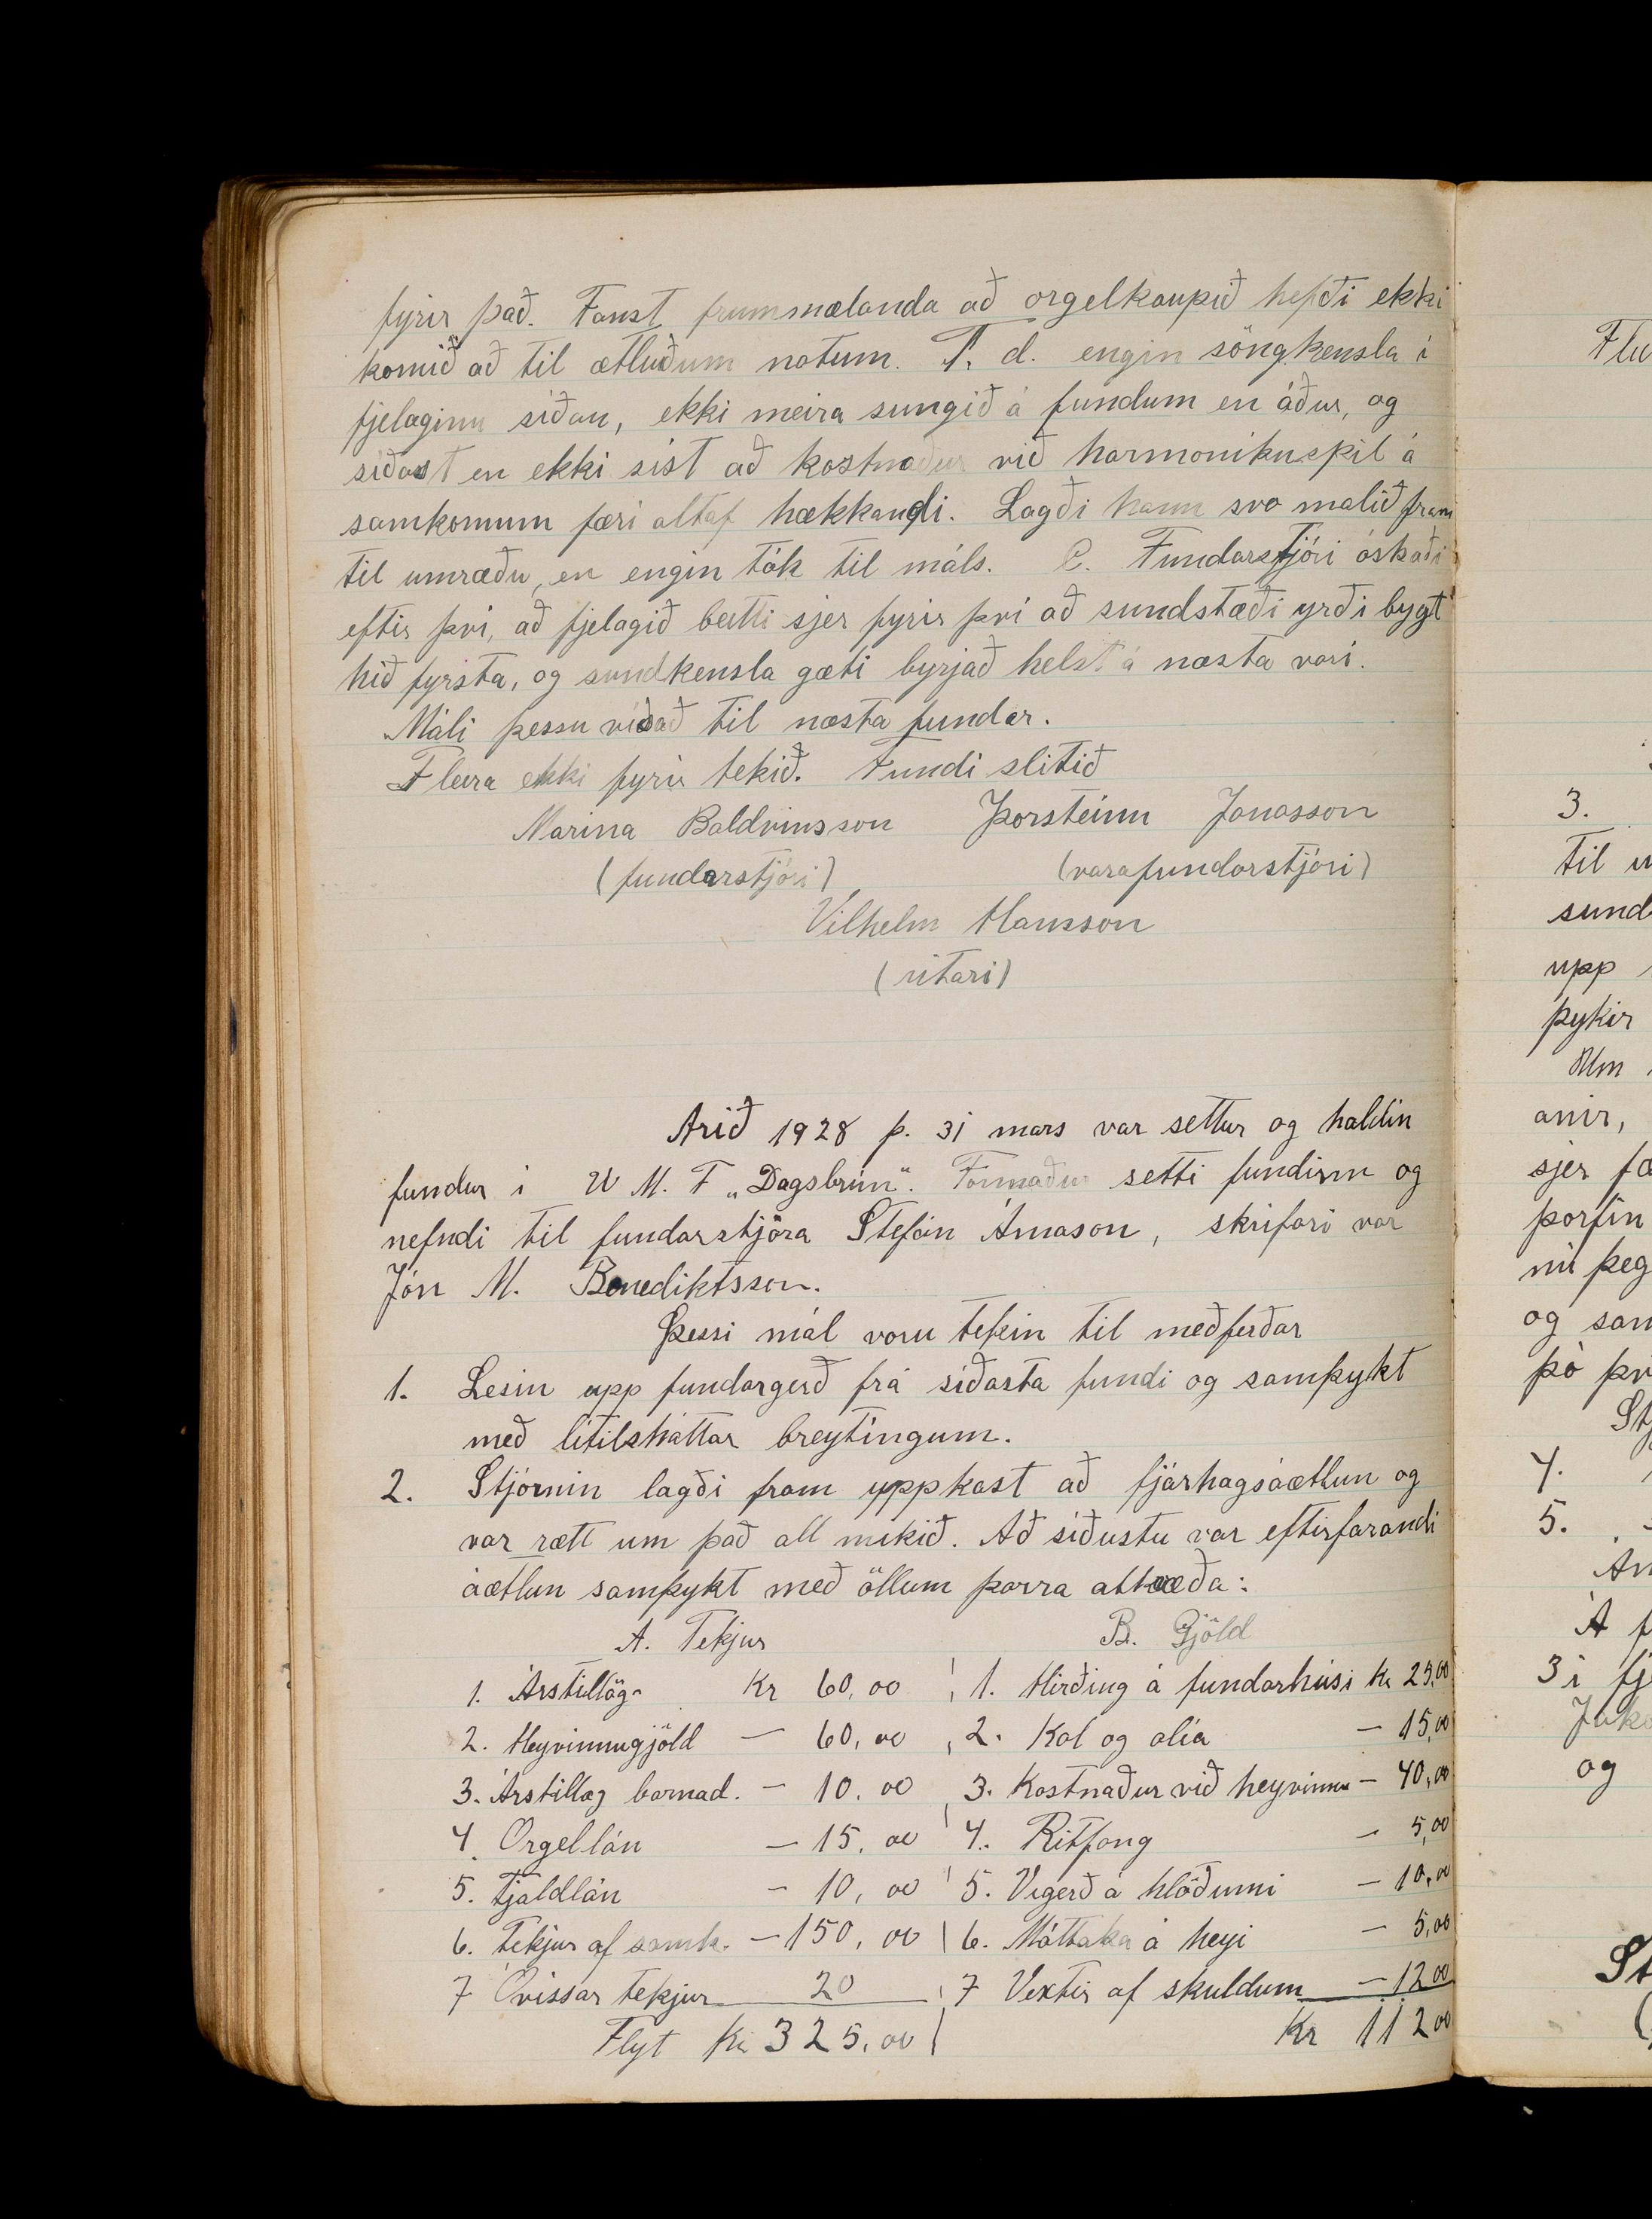 fyrir það. Fanst frummælanda að orgelkaupið hefði ekki
komið að til ætluðum notum. T. d. engin söngkensla í
fjelaginu síðan, ekki meira sungið á fundum en áður, og
síðast en ekki síst að kostnaður við harmonikuspil á
samkomum færi altaf hækkandi. Lagði hann svo malið fram
til umræðu, en engin tók til máls. C. Fundarstjóri óskaði
eftir því, að fjelagið beitti sjer fyrir því að sundstæði yrði bygt
hið fyrsta, og sundkensla gæti byrjað helst á næsta vori.
Máli þessu vísað til næsta fundar.
Fleira ekki fyrir tekið. Fundi slitið
Marino Baldvinsson Þorsteinn Jónasson
(fundarstjóri) (varafundarstjóri)
Vilhelm Hansson
(ritari)
Arið 1928 þ. 31 mars var settur og haldin
fundur í U. M. F „Dagsbrún“. Formaður setti fundinn og
nefndi til fundarstjóra Stefán Árnason, skrifari var
Jón M. Benediktsson.
Þessi mál voru tekin til meðferðar
1. Lesin upp fundargerð frá síðasta fundi og samþykt
með lítilsháttar breytingum.
2. Stjórnin lagði fram uppkast að fjárhagsáætlun og
var rætt um það all mikið. Að síðustu var eftirfarandi
áætlun samþykt með öllum þorra atkvæða:
A. Tekjur B. Gjöld
1. Árstillög Kr 60,00 1. Hirðing á fundarhúsi Kr 25,00
2. Heyvinnugjöld — 60,00 2. Kol og olía — 15,00
3. Árstillag barnad. — 10.00 3. Kostnaður við heyvinnu — 40,00
4. Orgellán — 15,00 4. Ritföng — 5,00
5. Tjaldlán — 10,00 5. Vigerð á hlöðunni — 10,00
6. Tekjur af samk. — 150,00 6. Móttaka á heyi — 5,00
7 Óvissar tekjur 20 7 Vextir af skuldum — 12 00
Flyt Kr 325,00 Kr 112 00
Flu
3.
til
sund
upp
þykir
Um
anir,
sjer fæ
þorfin
nú þeg
og sam
þó því
4.
5.
Á
3 í
og
St